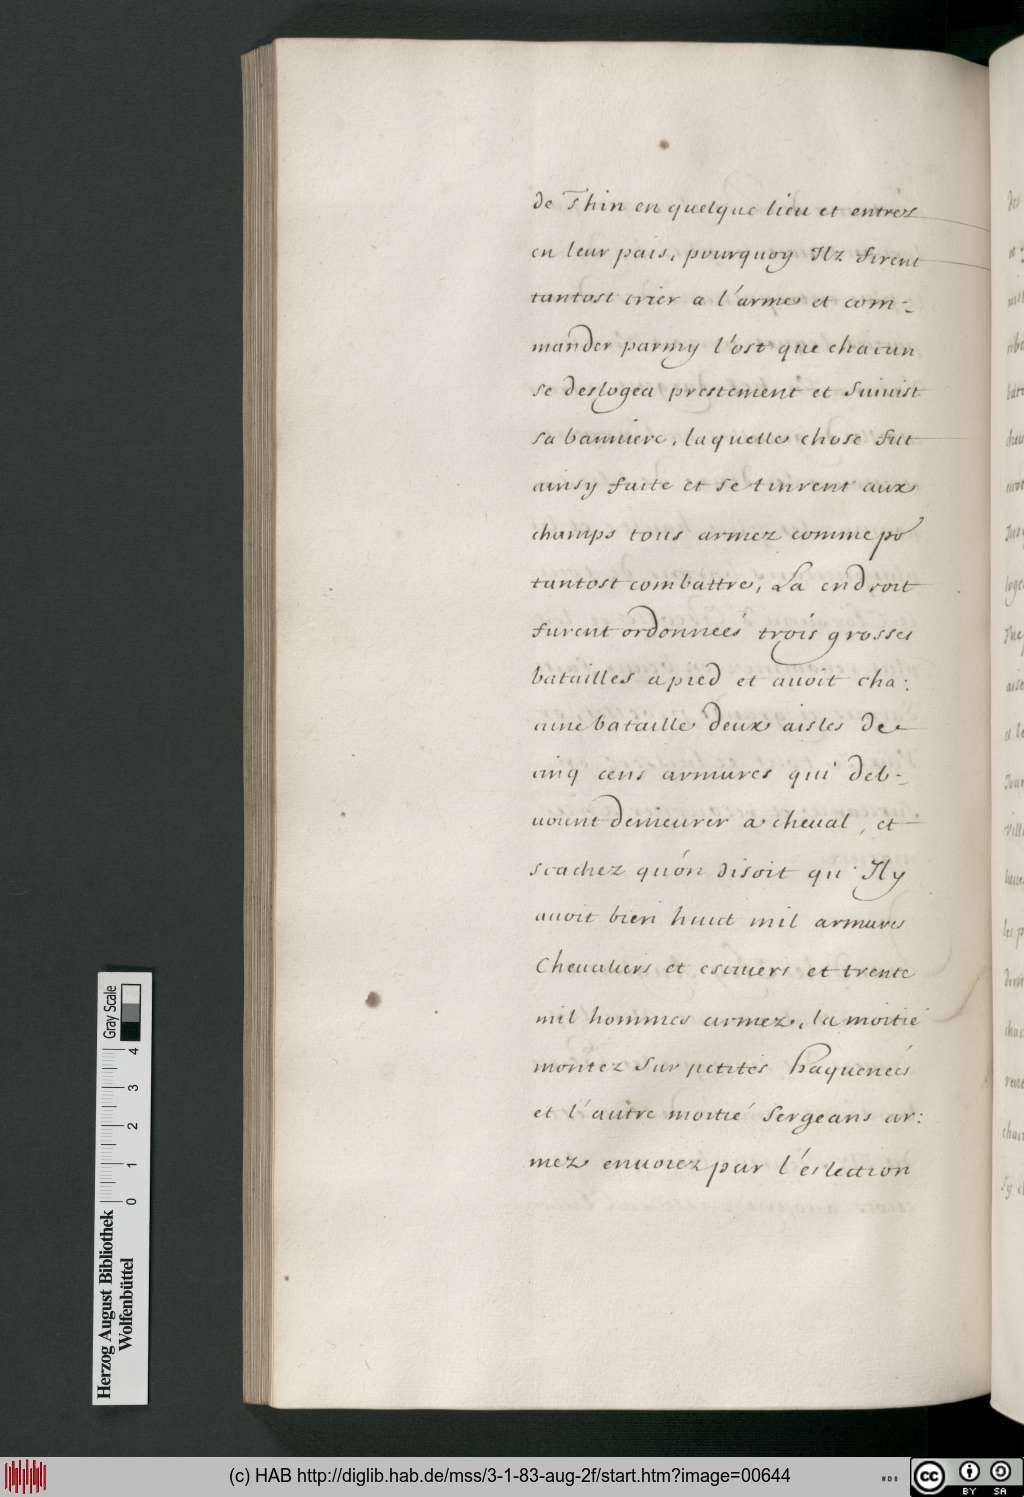 de Thin en quelque lieu et entrez
en leur pais, pourquoy Ilz firent
tantost crier a l'arme et com-
mander parmy l'ost que chacun
se deslogea prestement et suivist
sa banniere, laquelle chose fut
ainsy faite et se tinrent aux
champs tous armez comme po
tantost combattre, La endroit
furent ordonneés trois grosses
batailles a pied et avoit cha:
cune bataille deux aisles de
cinq cens armures qui deb-
voient demeurer a cheval, et
scachez qu'on disoit qu'Il y
avoit bien huict mil armures
Chevaliers et escuiers et trente
mil hommes armez, la moitié
montez sur petites haqueneés
et l'autre moitié Sergeans ar:
mez envoiez par l'eslection
Herzog August Bibliothek
Wolfenbüttel
0 1 2 3 4
Gray Scale
(c) HAB http://diglib.hab.de/mss/3-1-83-aug-2f/start.htm?image=00644
WDB
cc BY SA